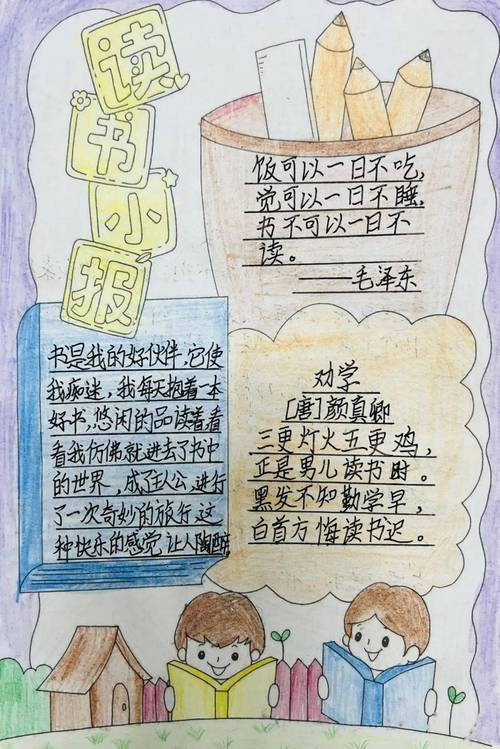 读书小报
饭可以一日不吃,
觉可以一日不睡,
书不可以一日不
读。
——毛泽东
书是我的好伙伴,它使
我痴迷,我每天抱着一本
好书,悠闲的品读着,看
看我仿佛就进去了书中
的世界,成了主人公,进行
了一次奇妙的旅行,这
种快乐的感觉让人陶醉
劝学
[唐]颜真卿
三更灯火五更鸡,
正是男儿读书时。
黑发不知勤学早,
白首方悔读书迟。